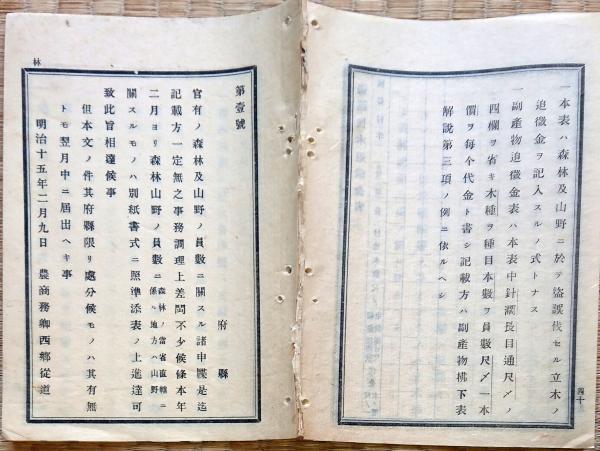 四十
一本表ハ森林及山野ニ於テ盜誤伐セル立木ノ
追徵金ヲ記入スルノ式トナス
一副產物追徵金表ハ本表中針濶長目通尺〆ノ
四欄ヲ省キ木種ヲ種目本數ヲ員數尺〆一本
價ヲ每個代金ト書シ記載方ハ副產物拂下表
解說第三項ノ例ニ依ルヘシ
林
第壹號
府縣
官有ノ森林及山野ノ員數ニ關スル諸申牒是迄
記載方一定無之事務調理上差閊不少候條本年
二月ヨリ森林山野ノ員數ニ森林ノ當省直轄ニ係ル地方ハ山野ノ
關スルモノハ別紙書式ニ照準添表ノ上進達可
致此旨相達候事
但本文ノ件其府縣限リ處分候モノハ其有無
トモ翌月中ニ屆出ヘキ事
明治十五年二月九日 農商務卿西鄉從道